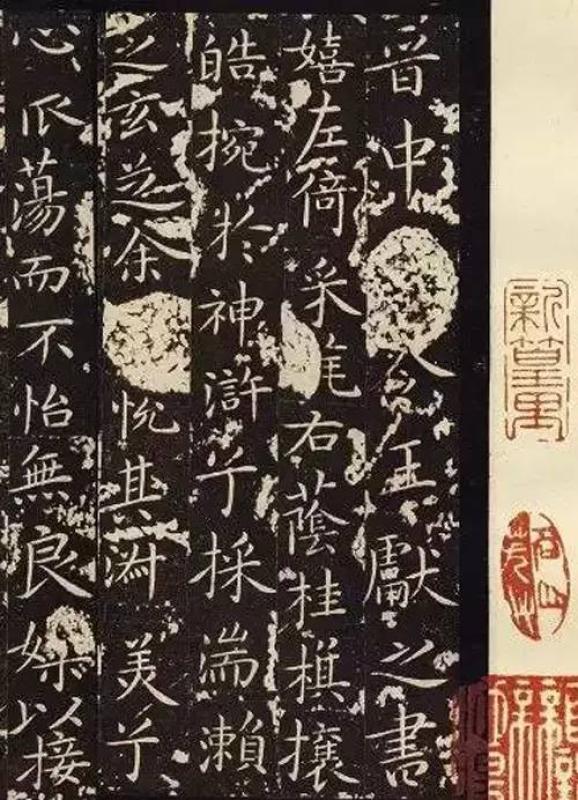 晉中令王獻之書
嬉左倚采旄右蔭桂旗攘
皓捥於神滸兮採湍瀨
之玄芝余悅其淑美兮
心振蕩而不怡無良媒以接
新篁里